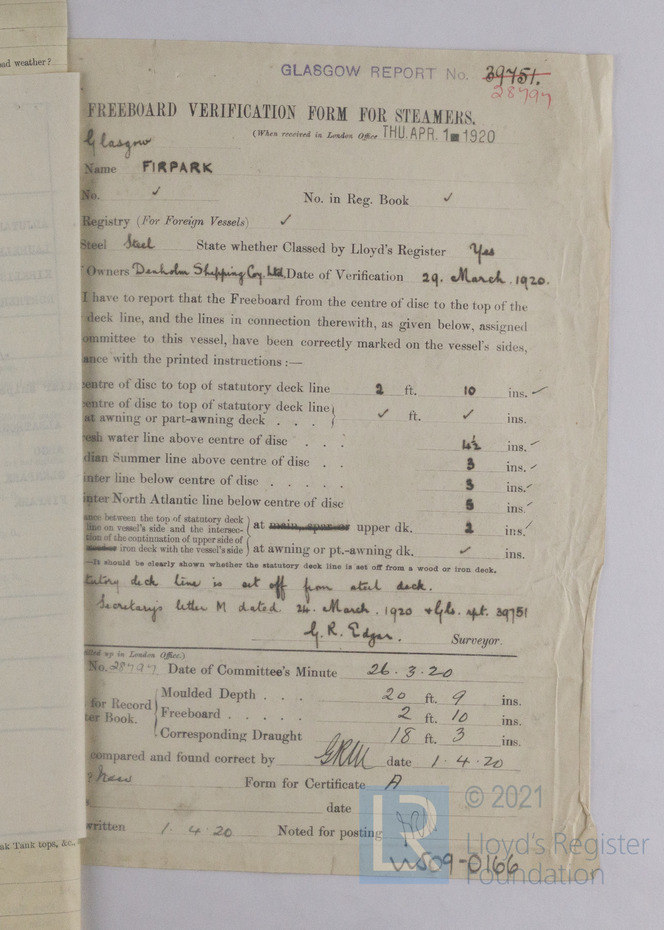 ad weather?
GLASGOW REPORT No. 39751.
28797
FREEBOARD VERIFICATION FORM FOR STEAMERS.
(When received in London Office THU. APR. 1 1920
Glasgow
Name FIRPARK
No. ✓ No. in Reg. Book ✓
Registry (For Foreign Vessels) ✓
Steel Steel State whether Classed by Lloyd's Register Yes
Owners Denholm Shipping Coy. Ltd. Date of Verification 29. March. 1920.
I have to report that the Freeboard from the centre of disc to the top of the
deck line, and the lines in connection therewith, as given below, assigned
ommittee to this vessel, have been correctly marked on the vessel's sides,
ance with the printed instructions :—
entre of disc to top of statutory deck line 2 ft. 10 ins. ✓
entre of disc to top of statutory deck line
at awning or part-awning deck . . . ✓ ft. ✓ ins.
esh water line above centre of disc . . 4½ ins. ✓
dian Summer line above centre of disc . . 3 ins. ✓
inter line below centre of disc . . . . . 3 ins. ✓
inter North Atlantic line below centre of disc 5 ins. ✓
ance between the top of statutory deck
line on vessel's side and the intersec-
tion of the continuation of upper side of
iron deck with the vessel's side
at main, spar or upper dk. 2 ins. ✓
at awning or pt.-awning dk. ✓ ins.
—It should be clearly shown whether the statutory deck line is set off from a wood or iron deck.
tutory deck line is set off from steel deck.
Secretary's letter M dated 24. March. 1920 & Gls. rpt. 39751
G. R. Edgar. Surveyor.
lled up in London Office.)
No. 28797 Date of Committee's Minute 26.3.20
for Record
ter Book.
Moulded Depth . . . 20 ft. 9 ins.
Freeboard . . . . . 2 ft. 10 ins.
Corresponding Draught 18 ft. 3 ins.
compared and found correct by date 1.4.20
? New Form for Certificate A
date
written 1.4.20 Noted for posting
ak Tank tops, &c.
W509-0166
LR
© 2021
Lloyd's Register
Foundation